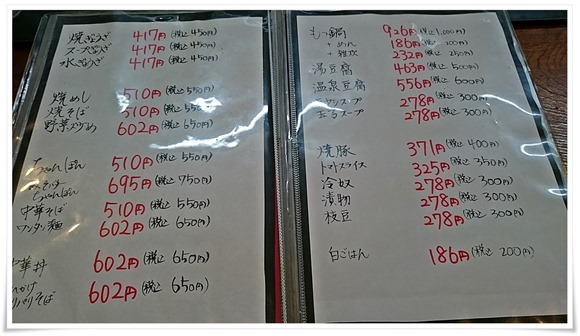 焼ぎょうざ 417円(税込 450円)
スープぎょうざ 417円(税込 450円)
水ぎょうざ 417円(税込 450円)
焼めし 510円(税込 550円)
焼そば 510円(税込 550円)
野菜炒め 602円(税込 650円)
ちゃんぽん 510円(税込 550円)
ちゃんぽん 695円(税込 750円)
中華そば 510円(税込 550円)
ワンタン麺 602円(税込 650円)
中華丼 602円(税込 650円)
602円(税込 650円)
もつ鍋 926円(税込 1,000円)
+めん 186円(税込 200円)
+雑炊 232円(税込 250円)
湯豆腐 463円(税込 500円)
温泉豆腐 556円(税込 600円)
スープ 278円(税込 300円)
スープ 278円(税込 300円)
焼豚 371円(税込 400円)
トマトスライス 325円(税込 350円)
冷奴 278円(税込 300円)
漬物 278円(税込 300円)
枝豆 278円(税込 300円)
白ごはん 186円(税込 200円)